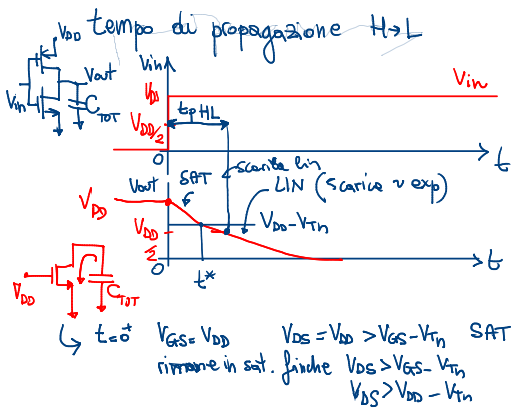 tempo di propagazione H→L
VDD
Vout
Vin
CTOT
Vin
VDD
Vin
tpHL
VDD/2
0
t
scarica lin
Vout
SAT
LIN (scarica ~ exp)
VDD
VDD-VTn
VDD
2
0
t*
t
VDD
CTOT
t=0+ VGS=VDD VDS=VDD>VGS-VTn SAT
rimane in sat. finche VDS>VGS-VTn
VDS>VDD-VTn